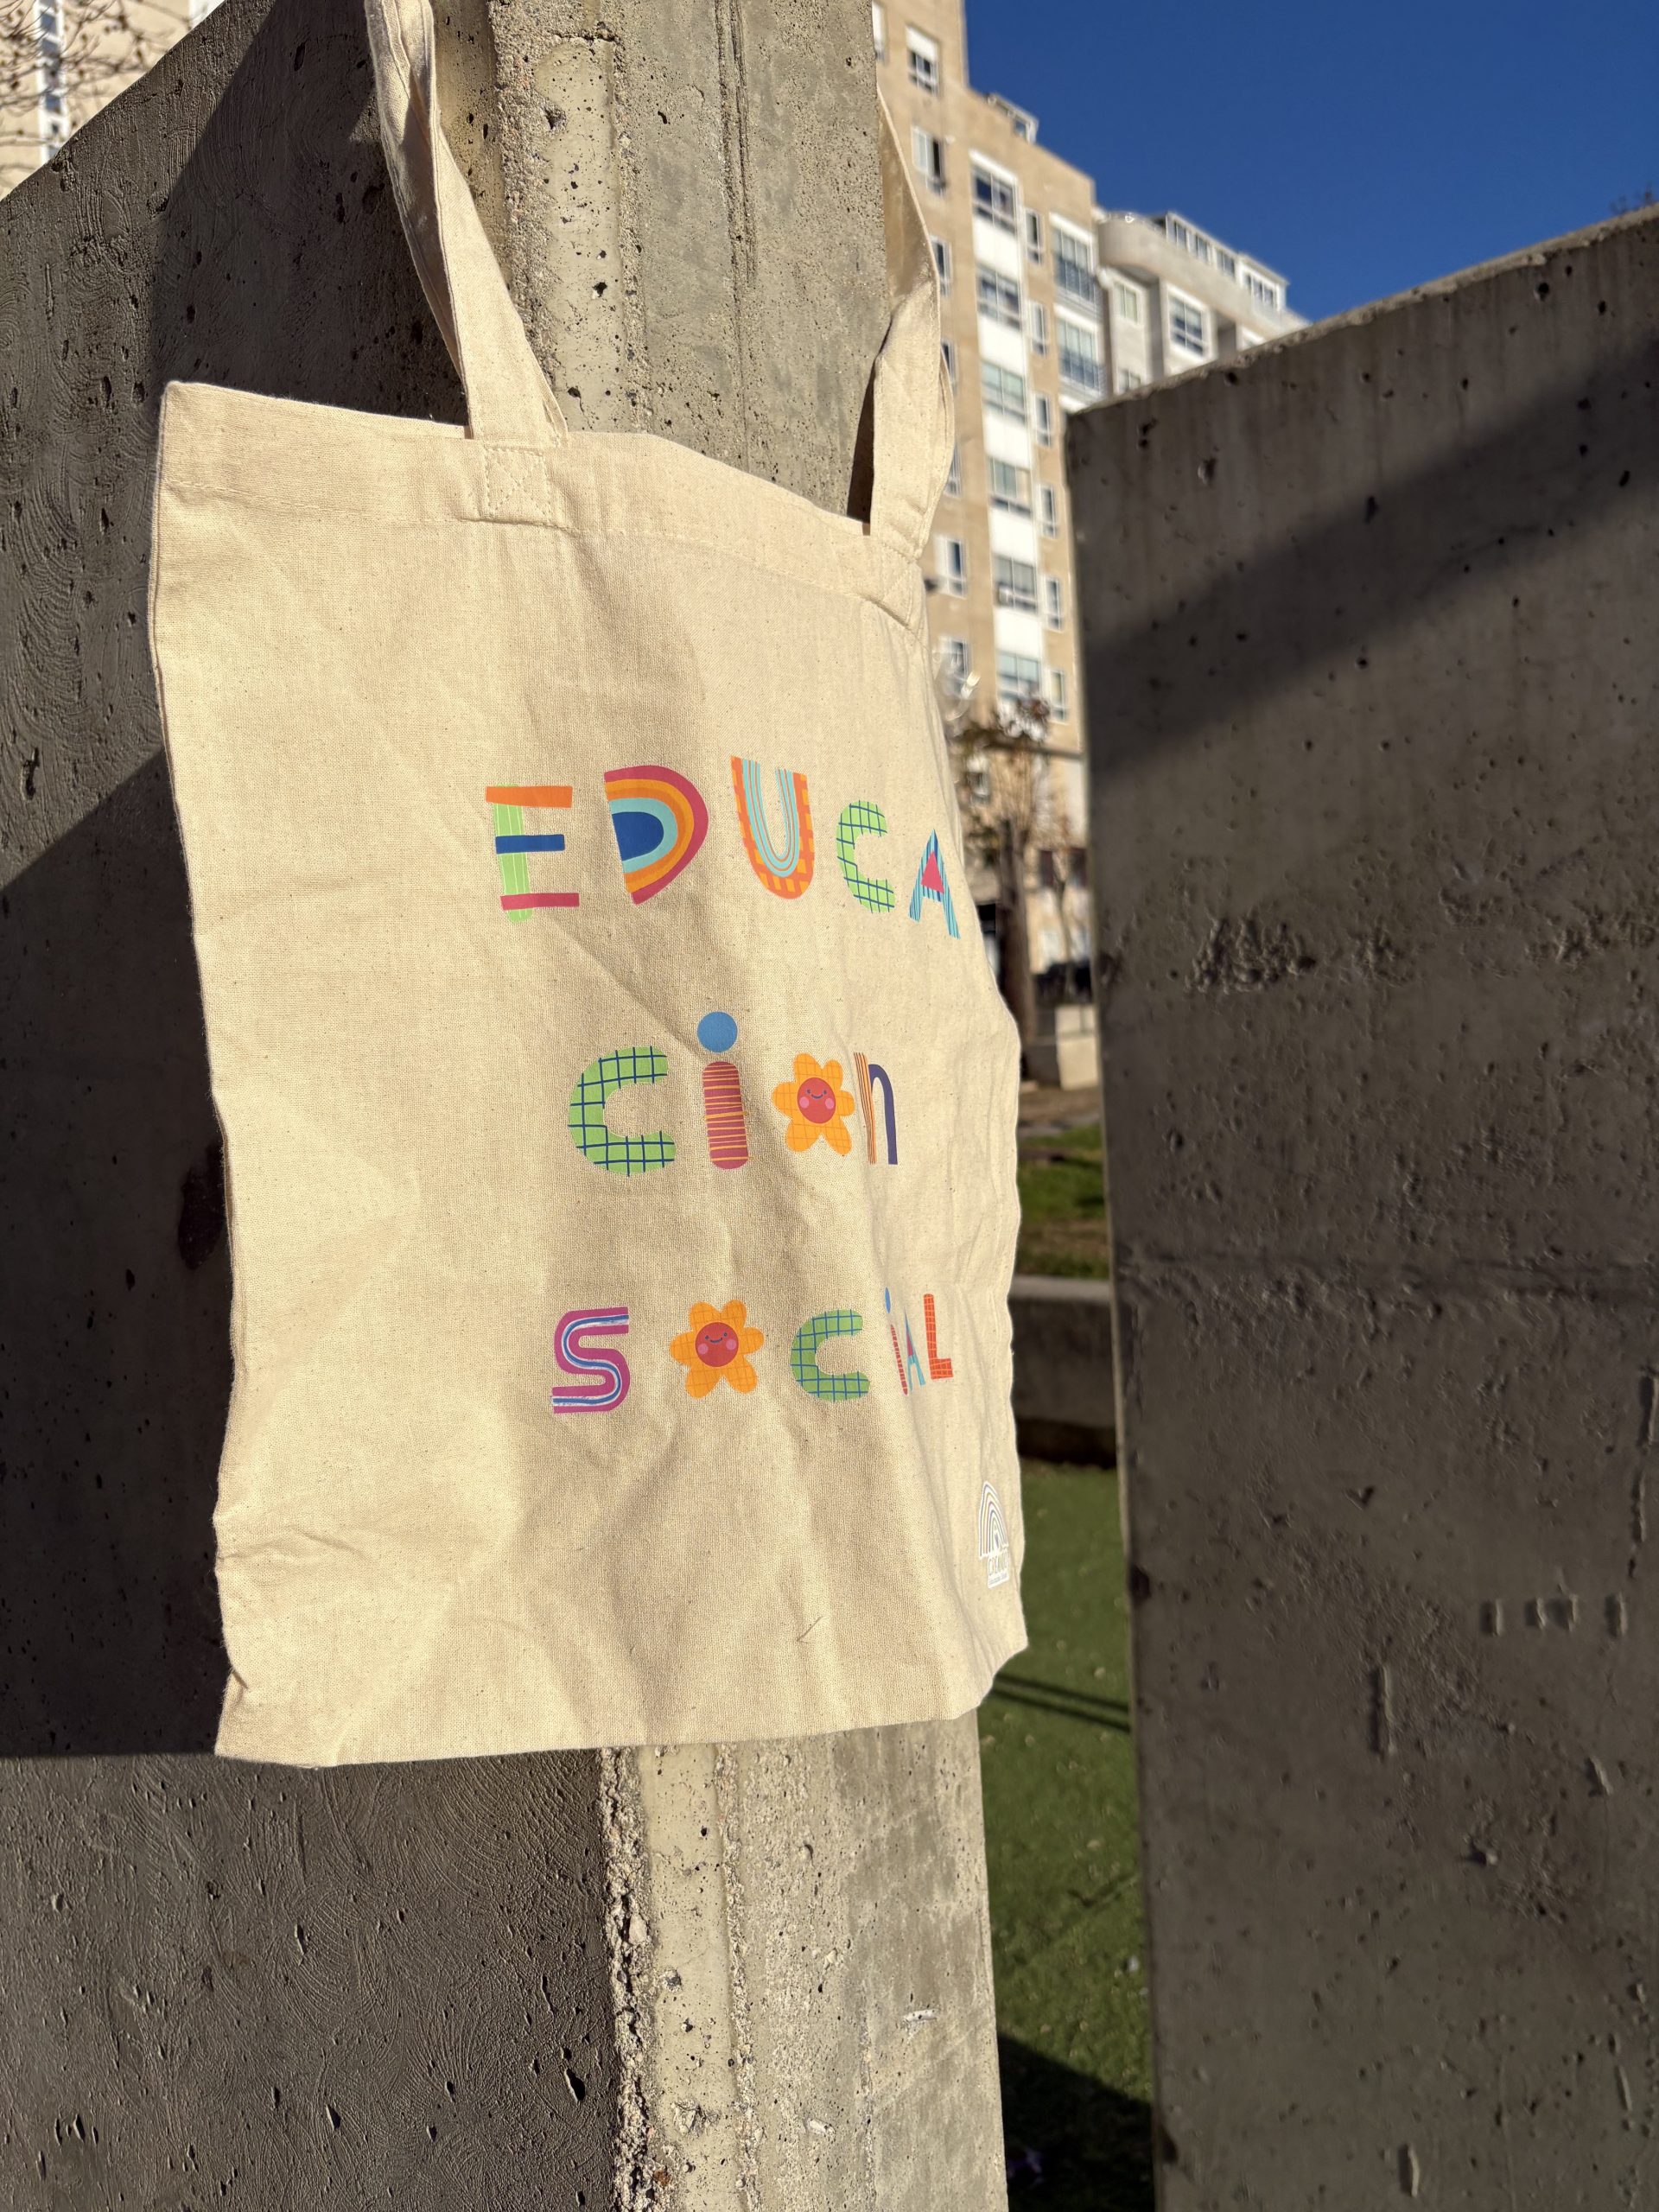 EDUCA
cion
SOCiAL